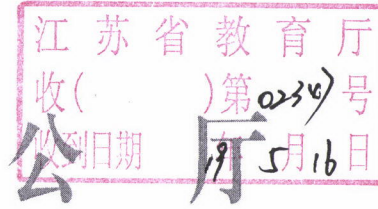 江苏省教育厅
收( )第02347号
收到日期 19年5月16日
公 厅